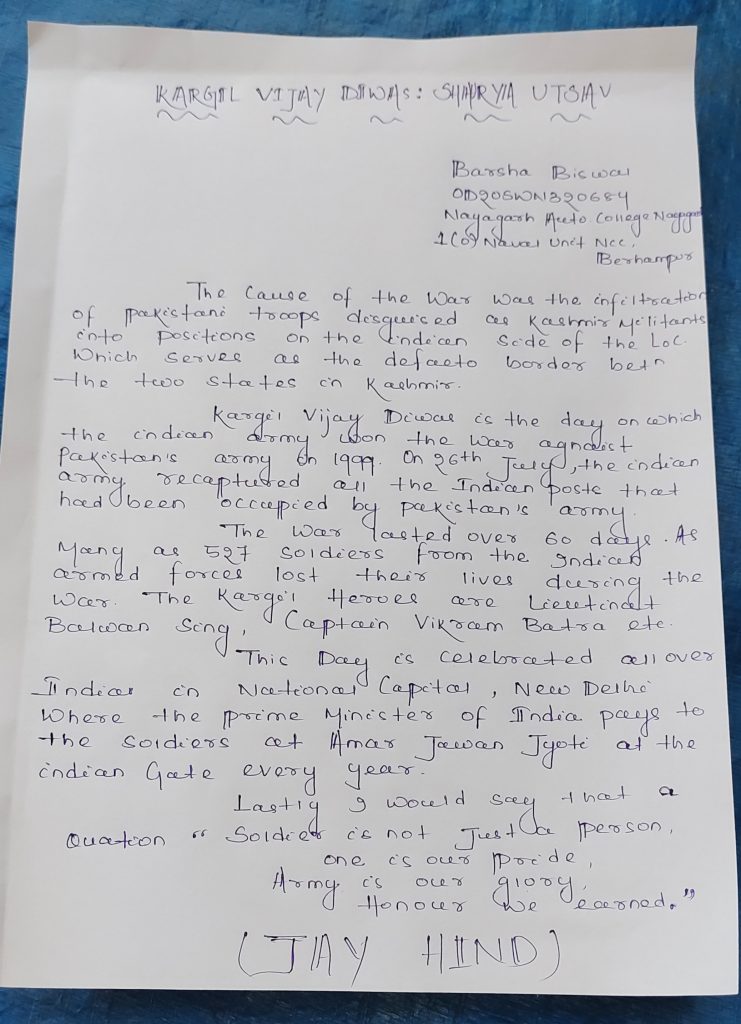 KARGIL VIJAY DIWAS: SHAURYA UTSAV
Barsha Biswal
OD20SWN320684
Nayagarh Auto. College Nayagarh
1(O) Naval Unit Ncc,
Berhampur
The Cause of the War was the infiltration
of Pakistani troops disguised as Kashmir Militants
into positions on the indian side of the LoC.
Which serves as the defacto border betn
the two states in Kashmir.
Kargil Vijay Diwas is the day on which
the indian army won the War agnaist
Pakistan's army in 1999. On 26th July, the indian
army recaptured all the Indian posts that
had been occupied by pakistan's army.
The War lasted over 60 days. As
Many as 527 soldiers from the Indian
armed forces lost their lives during the
War. The Kargil Heroes are Lieutinant
Balwan Sing, Captain Vikram Batra etc.
This Day is celebrated all over
India in National Capital, New Delhi
Where the prime Minister of India pays to
the soldiers at Amar Jawan Jyoti at the
indian Gate every year.
Lastly I would say that a
Quation " Soldier is not Just a person,
one is our pride,
Army is our glory,
Honour we earned."
(JAY HIND)